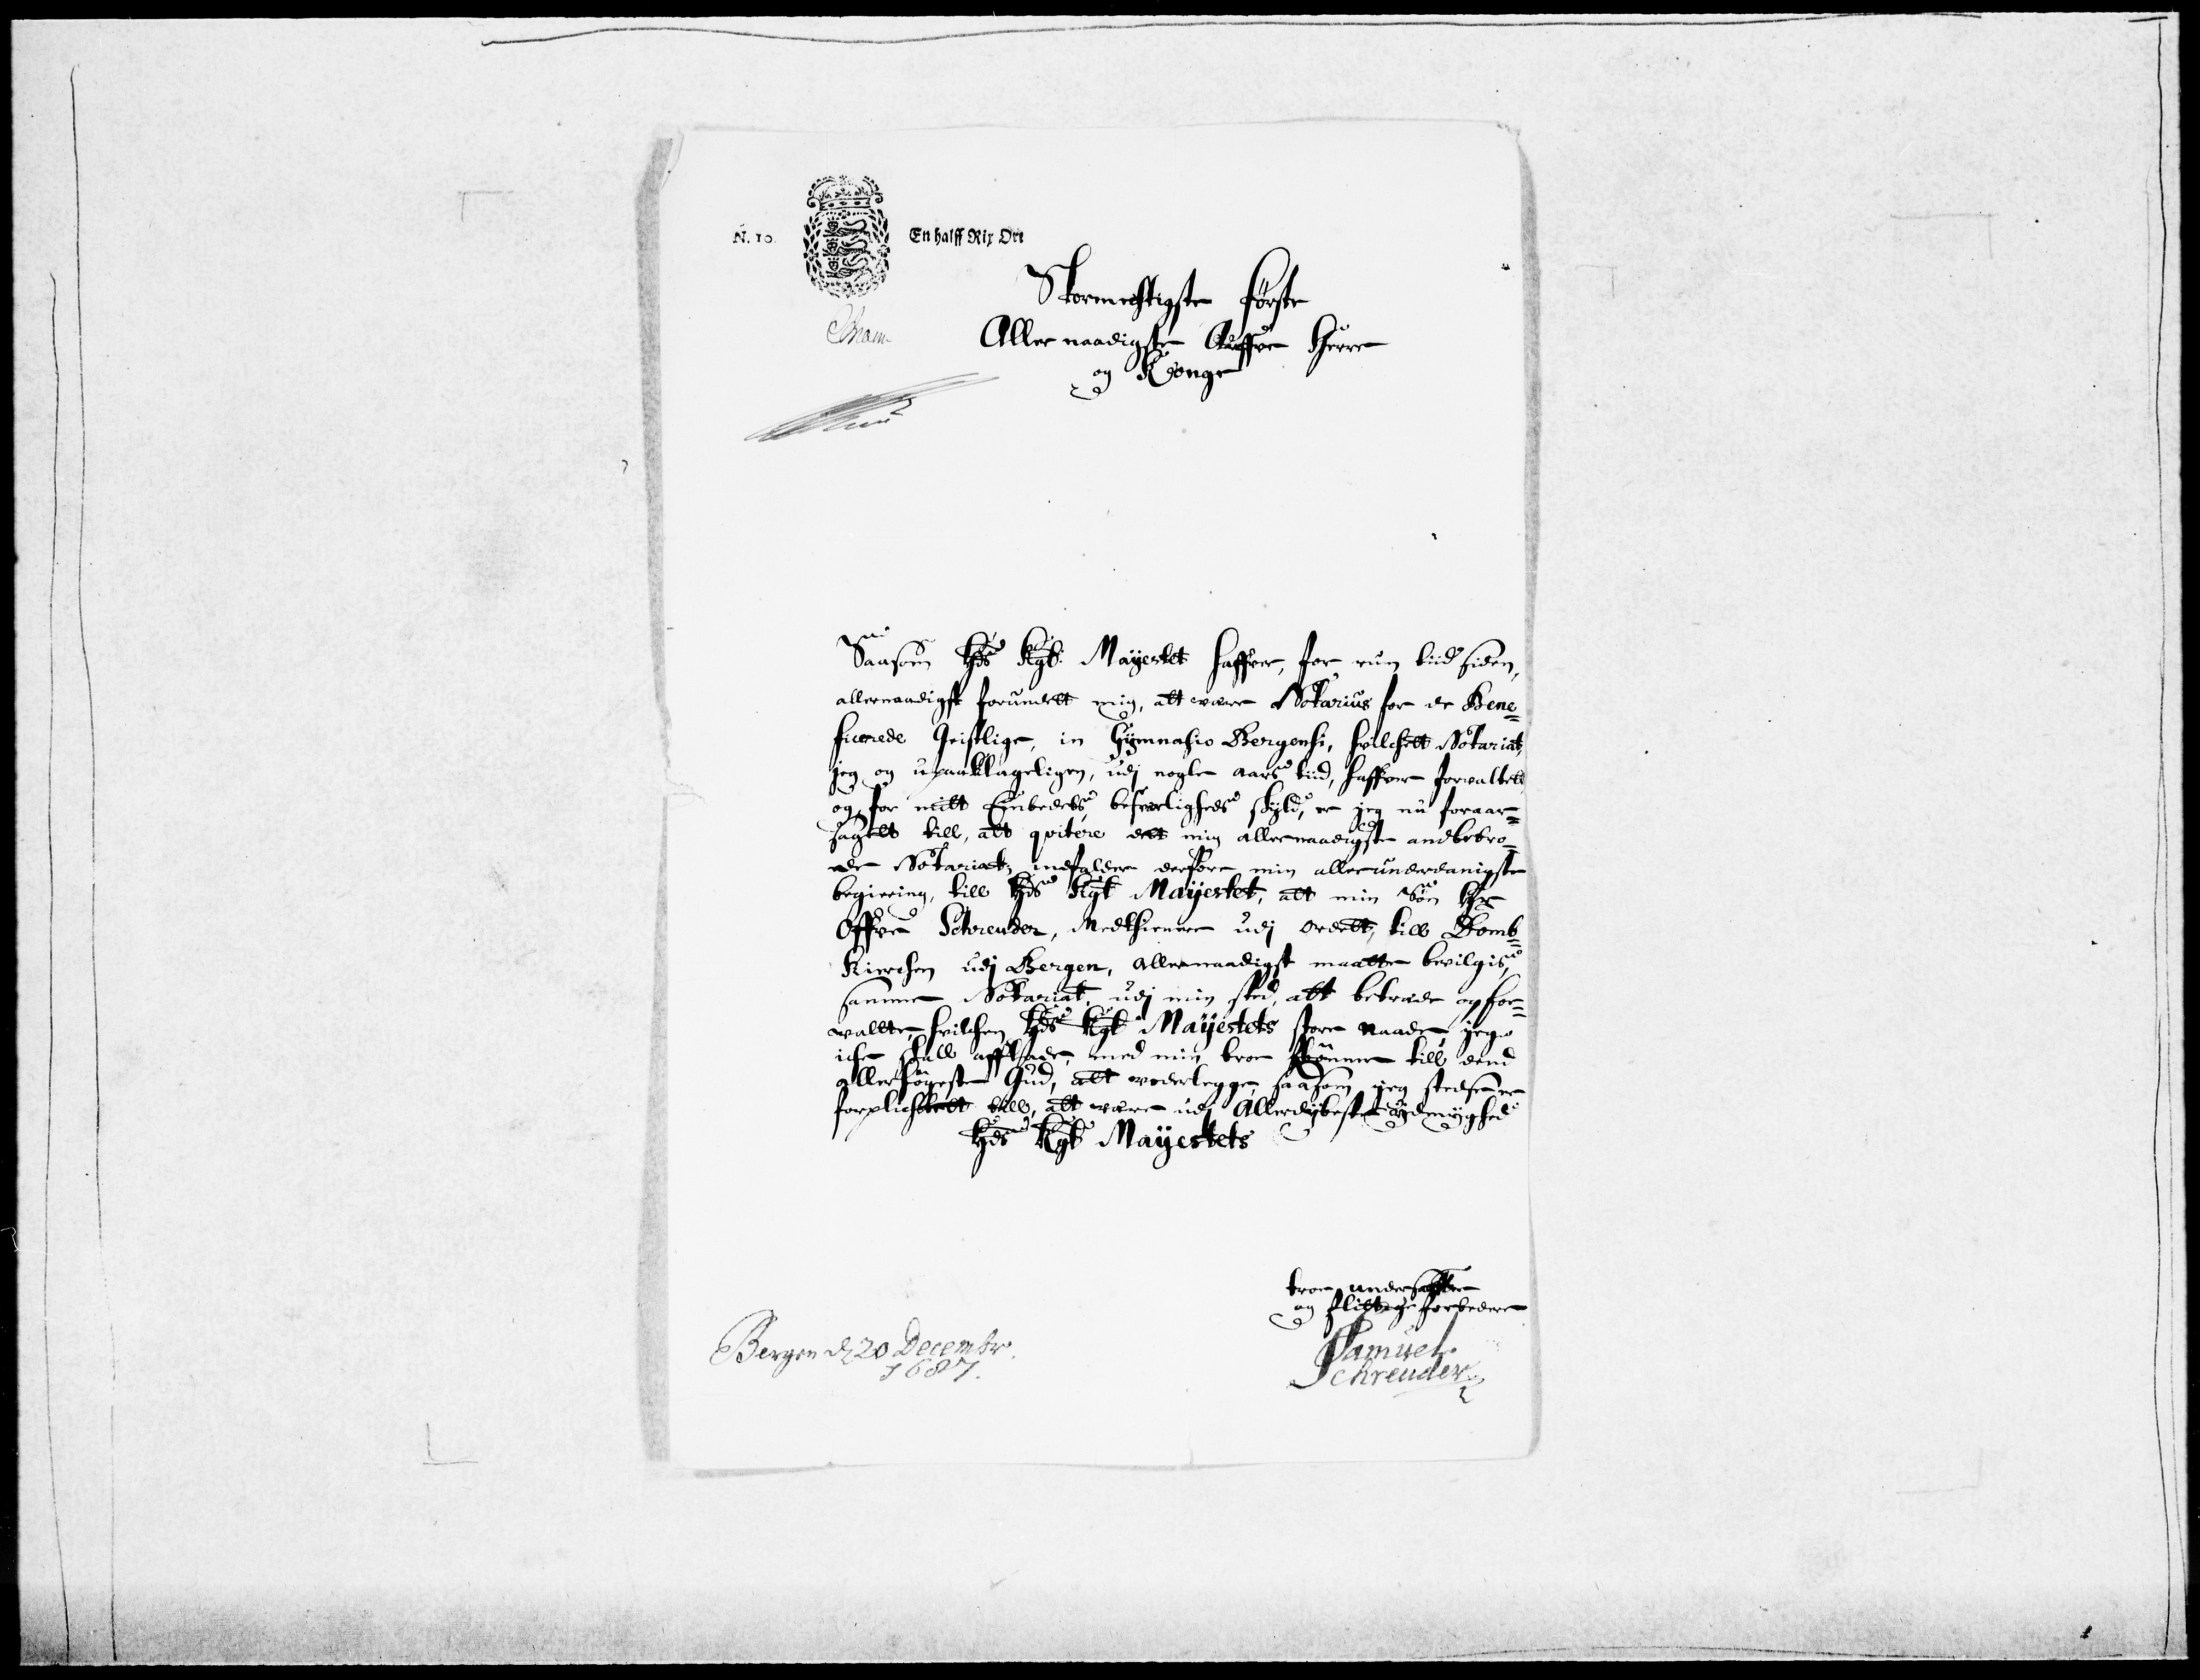 N. 10.
En halff Rix Ort
Stormechtigste Første
Aller naadigste Arffve Herre
og Konge
Saasom Eds Kgl: Mayestet haffver, for rum tiid siden,
allernaadigst forundt mig, att være Notarius for de Bene=
ficerede Geistlige, in Gymnasio Bergensi, hvilchett Notariat,
jeg og upaaklageligen, udj nogle aars tiid, haffver forvaltett
og for mitt Embedets besværligheds skyld, er jeg nu foraar=
sagett till, att qvitere dett mig allernaadigste anbetro=
ede Notariat; indfalder derfore min allerunderdanigste
begiering, till Eds Kgl Mayestet, att min Søn Hr
Offve Schreuder, Medthienere udj ordett, till Domb=
Kirchen udj Bergen, allernaadigst maatte bevilgis,
samme Notariat, udj min sted, att betræde, og for=
vallte, hvilchen Eds Kgl Mayestets store naade, jeg
iche skall afflade, med min troe bønner till dend
allerhøgeste Gud, att vederlegge, saasom jeg stedse er
forplichtett till, att være udj Allerdybeste ydmyghed
Eds Kgl Mayestets
troe undersaatte
og flittige forbedere
Samuel
Schreuder
Bergen d 20 Decembr.
1687.